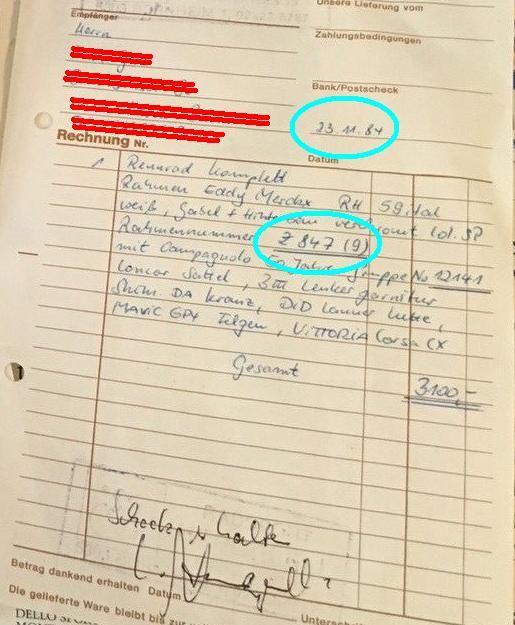 Unsere Lieferung vom
Empfänger
Herrn
Zahlungsbedingungen
Bank/Postscheck
23.11.84
Rechnung Nr.
Datum
1 Rennrad komplett
Rahmen Eddy Merckx RH 59, ital
weiß, Gabel + verchromt Col. SP
Rahmennummer Z 847 (9)
mit Campagnolo 50 Jahre Gruppe No 12141
Concor Sattel, 3ttt Lenker garnitur
Shim. DA Kranz, DiD Lanner Kette,
MAVIC GP4 Felgen, VITTORIA Corsa CX
Gesamt
3100,-
Scheck erhalten
Betrag dankend erhalten Datum
Unterschrift
Die gelieferte Ware bleibt bis zur
DELLO